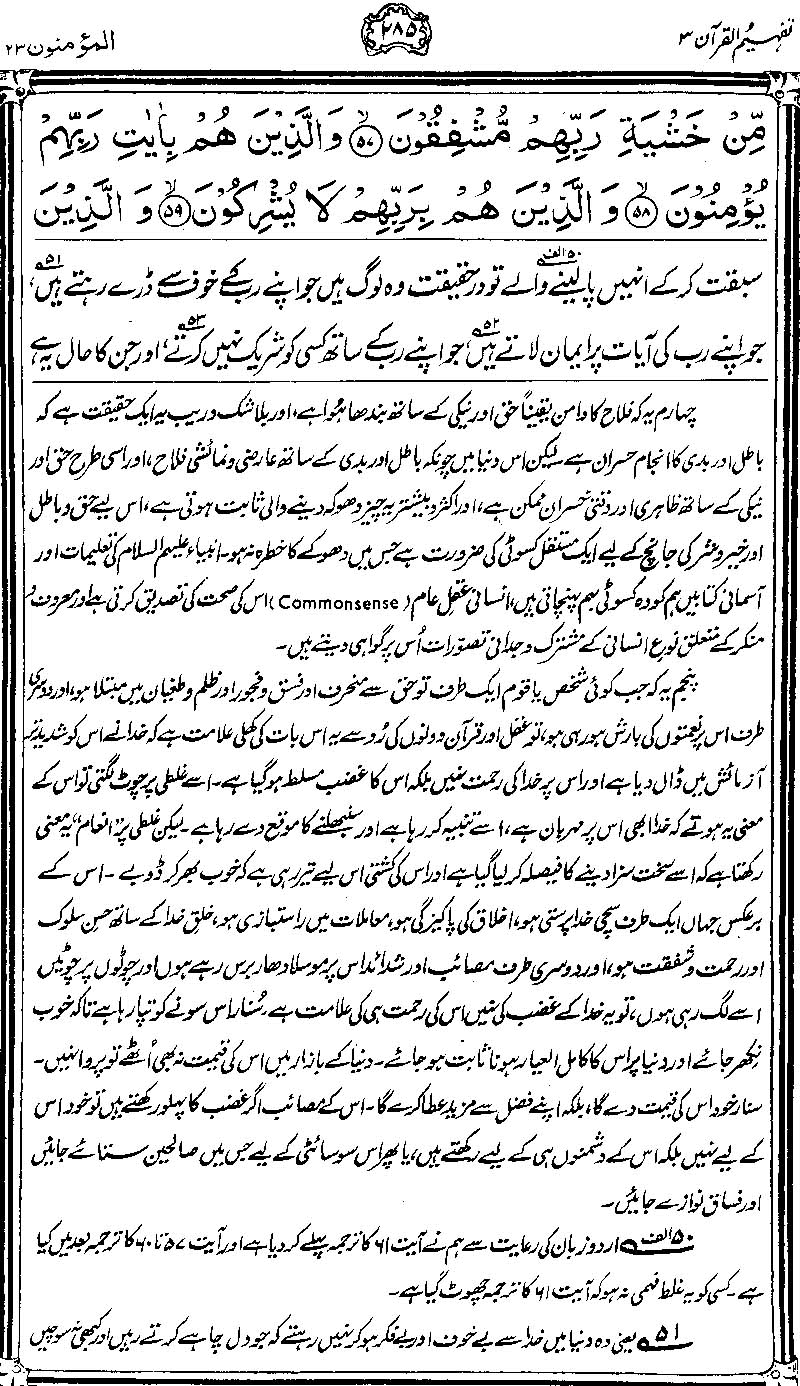 تفہیم القرآن ۳
۲۸۵
المؤمنون ۲۳
مِّنْ خَشْيَةِ رَبِّهِمْ مُّشْفِقُوْنَ ﴿۵۷﴾ وَالَّذِيْنَ هُمْ بِاٰيٰتِ رَبِّهِمْ
يُؤْمِنُوْنَ ﴿۵۸﴾ وَالَّذِيْنَ هُمْ بِرَبِّهِمْ لَا يُشْرِكُوْنَ ﴿۵۹﴾ وَالَّذِيْنَ
سبقت کر کے انہیں پا لینے والے ۵۰الف تو درحقیقت وہ لوگ ہیں جو اپنے رب کے خوف سے ڈرے رہتے ہیں ۵۱،
جو اپنے رب کی آیات پر ایمان لاتے ہیں ۵۲، جو اپنے رب کے ساتھ کسی کو شریک نہیں کرتے ۵۳، اور جن کا حال یہ ہے
چہارم یہ کہ فلاح کا دامن یقیناً حق اور نیکی کے ساتھ بندھا ہوا ہے، اور بلا شک و ریب یہ ایک حقیقت ہے کہ
باطل اور بدی کا انجام خسران ہے۔ لیکن اس دنیا میں چونکہ باطل اور بدی کے ساتھ عارضی و نمائشی فلاح، اور اسی طرح حق اور
نیکی کے ساتھ ظاہری اور وقتی خسران ممکن ہے، اور اکثر و بیشتر یہ چیز دھوکہ دینے والی ثابت ہوتی ہے، اس لیے حق و باطل
اور خیر و شر کی جانچ کے لیے ایک مستقل کسوٹی کی ضرورت ہے جس میں دھوکے کا خطرہ نہ ہو۔ انبیاء علیہم السلام کی تعلیمات اور
آسمانی کتابیں ہم کو وہ کسوٹی بہم پہنچاتی ہیں، انسانی عقلِ عام (Commonsense) اس کی صحت کی تصدیق کرتی ہے اور معروف و
منکر کے متعلق نوع انسانی کے مشترک وجدانی تصورات اُس پر گواہی دیتے ہیں۔
پنجم یہ کہ جب کوئی شخص یا قوم ایک طرف تو حق سے منحرف اور فسق و فجور اور ظلم و طغیان میں مبتلا ہو، اور دوسری
طرف اس پر نعمتوں کی بارش ہو رہی ہو، تو عقل اور قرآن دونوں کی رُو سے یہ اس بات کی کھلی علامت ہے کہ خدا نے اس کو شدید تر
آزمائش میں ڈال دیا ہے اور اس پر خدا کی رحمت نہیں بلکہ اس کا غضب مسلط ہو گیا ہے۔ اسے غلطی پر چوٹ لگتی تو اس کے
معنی یہ ہوتے کہ خدا ابھی اس پر مہربان ہے، اسے تنبیہ کر رہا ہے اور سنبھلنے کا موقع دے رہا ہے۔ لیکن غلطی پر ’’انعام‘‘ یہ معنی
رکھتا ہے کہ اسے سخت سزا دینے کا فیصلہ کر لیا گیا ہے اور اس کی کشتی اس لیے تیر رہی ہے کہ خوب بھر کر ڈوبے۔ اس کے
برعکس جہاں ایک طرف سچی خدا پرستی ہو، اخلاق کی پاکیزگی ہو، معاملات میں راستبازی ہو، خلق خدا کے ساتھ حسن سلوک
اور رحمت و شفقت ہو، اور دوسری طرف مصائب اور شدائد اس پر موسلا دھار برس رہے ہوں اور چوٹوں پر چوٹیں
اسے لگ رہی ہوں، تو یہ خدا کے غضب کی نہیں اس کی رحمت ہی کی علامت ہے۔ سُنار اس سونے کو تپا رہا ہے تاکہ خوب
نکھر جائے اور دنیا پر اس کا کامل العیار ہونا ثابت ہو جائے۔ دنیا کے بازار میں اس کی قیمت نہ بھی اُٹھے تو پروا نہیں۔
سنار خود اس کی قیمت دے گا، بلکہ اپنے فضل سے مزید عطا کرے گا۔ اس کے مصائب اگر غضب کا پہلو رکھتے ہیں تو خود اس
کے لیے نہیں بلکہ اس کے دشمنوں ہی کے لیے رکھتے ہیں، یا پھر اس سوسائٹی کے لیے جس میں صالحین ستائے جائیں
اور فساق نوازے جائیں۔
۵۰الف اردو زبان کی رعایت سے ہم نے آیت ۶۱ کا ترجمہ پہلے کر دیا ہے اور آیت ۵۷ تا ۶۰ کا ترجمہ بعد میں کیا
ہے۔ کسی کو یہ غلط فہمی نہ ہو کہ آیت ۶۱ کا ترجمہ چھوٹ گیا ہے۔
۵۱ یعنی وہ دنیا میں خدا سے بے خوف اور بے فکر ہو کر نہیں رہتے کہ جو دل چاہے کرتے رہیں اور کبھی نہ سوچیں